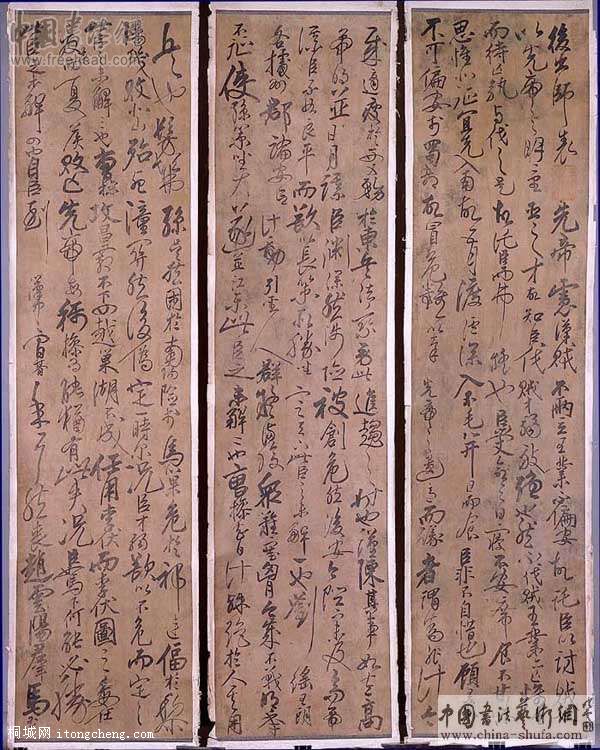 後出師表 先帝慮漢賊不兩立王業不偏安故託臣以討賊
以先帝之明量臣之才故知臣伐賊才弱敵強也然不伐賊王業亦亡惟坐
而待亡孰與伐之是故託臣弗疑也臣受命之日寢不安席食不甘
思惟北征宜先入南故五月渡瀘深入不毛并日而食臣非不自惜也顧
不可偏安於蜀都故冒危難以奉先帝之遺意而議者謂為非計今
適疲於西又務於東兵法乘勞此進趨之時也謹陳其事如左高
帝明並日月謀臣淵深然涉險被創危然後安今陛下未及高帝
謀臣不如良平而欲以長策取勝坐定天下此臣之未解一也劉繇王朗
各據州郡論安言計動引聖人群疑滿腹眾難塞胸今歲不戰明年
不征使孫策坐大遂並江東此臣之未解二也曹操智計殊絕於人其用
兵也髣髴孫吳然困於南陽險於烏巢危於祁連偪於黎
陽幾敗北山殆死潼關然後偽定一時耳況臣才弱欲以不危而定
未解三也曹操五攻昌霸不下四越巢湖不成任用李伏而李伏圖之委任
夏侯夏侯敗亡先帝每稱操為能猶有此失況臣駑下何能必勝
此臣之未解四也自臣到漢中中間朞年耳然喪趙雲陽群馬
中国书法艺术网
桐城网 itongcheng.com
www.china-shufa.com